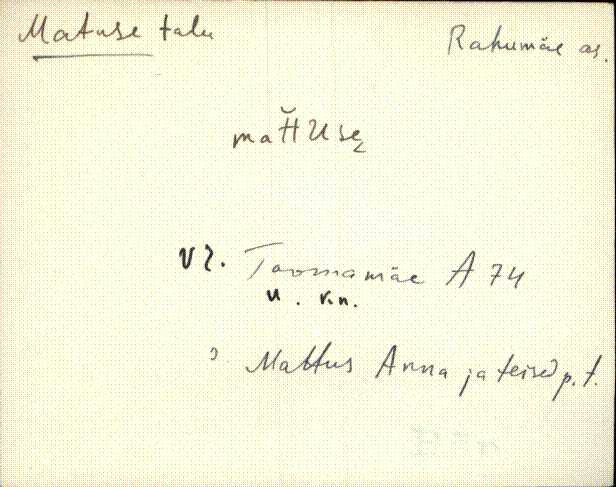 Matuse talu
Rahumäe as.
mattuse
V2. Toomamäe A 74
u. v.n.
Mattus Anna ja teised p.t.